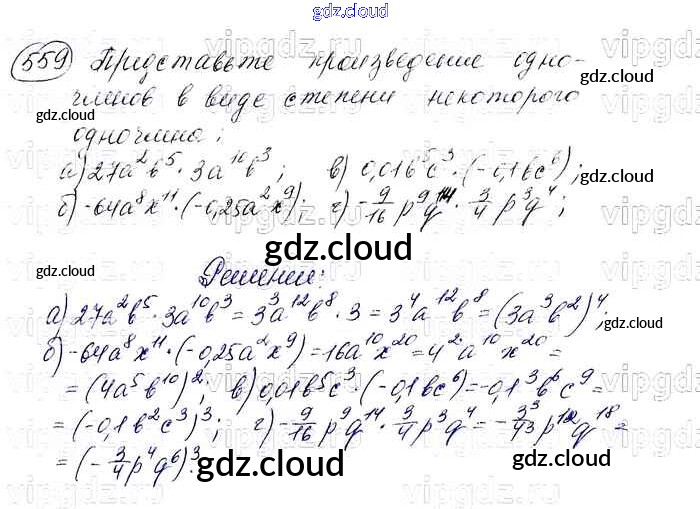 gdz.cloud
559 Представьте произведение одно-
членов в виде степени некоторого
одночлена:
а) 27a²b⁵ · 3a¹⁰b³; в) 0,01b⁵c³ · (-0,1bc⁶);
б) -64a⁸x¹¹ · (-0,25a²x⁹); г) -9/16 p⁹q¹⁴ · 3/4 p³q⁴;
gdz.cloud
Решение:
а) 27a²b⁵ · 3a¹⁰b³ = 3³a¹²b⁸ · 3 = 3⁴a¹²b⁸ = (3a³b²)⁴;
б) -64a⁸x¹¹ · (-0,25a²x⁹) = 16a¹⁰x²⁰ = 4²a¹⁰x²⁰ =
= (4a⁵b¹⁰)²; в) 0,01b⁵c³ · (-0,1bc⁶) = -0,1³b⁶c⁹ =
= (-0,1b²c³)³; г) -9/16 p⁹q¹⁴ · 3/4 p³q⁴ = -3³/4³ p¹²q¹⁸ =
= (-3/4 p⁴q⁶)³.
gdz.cloud